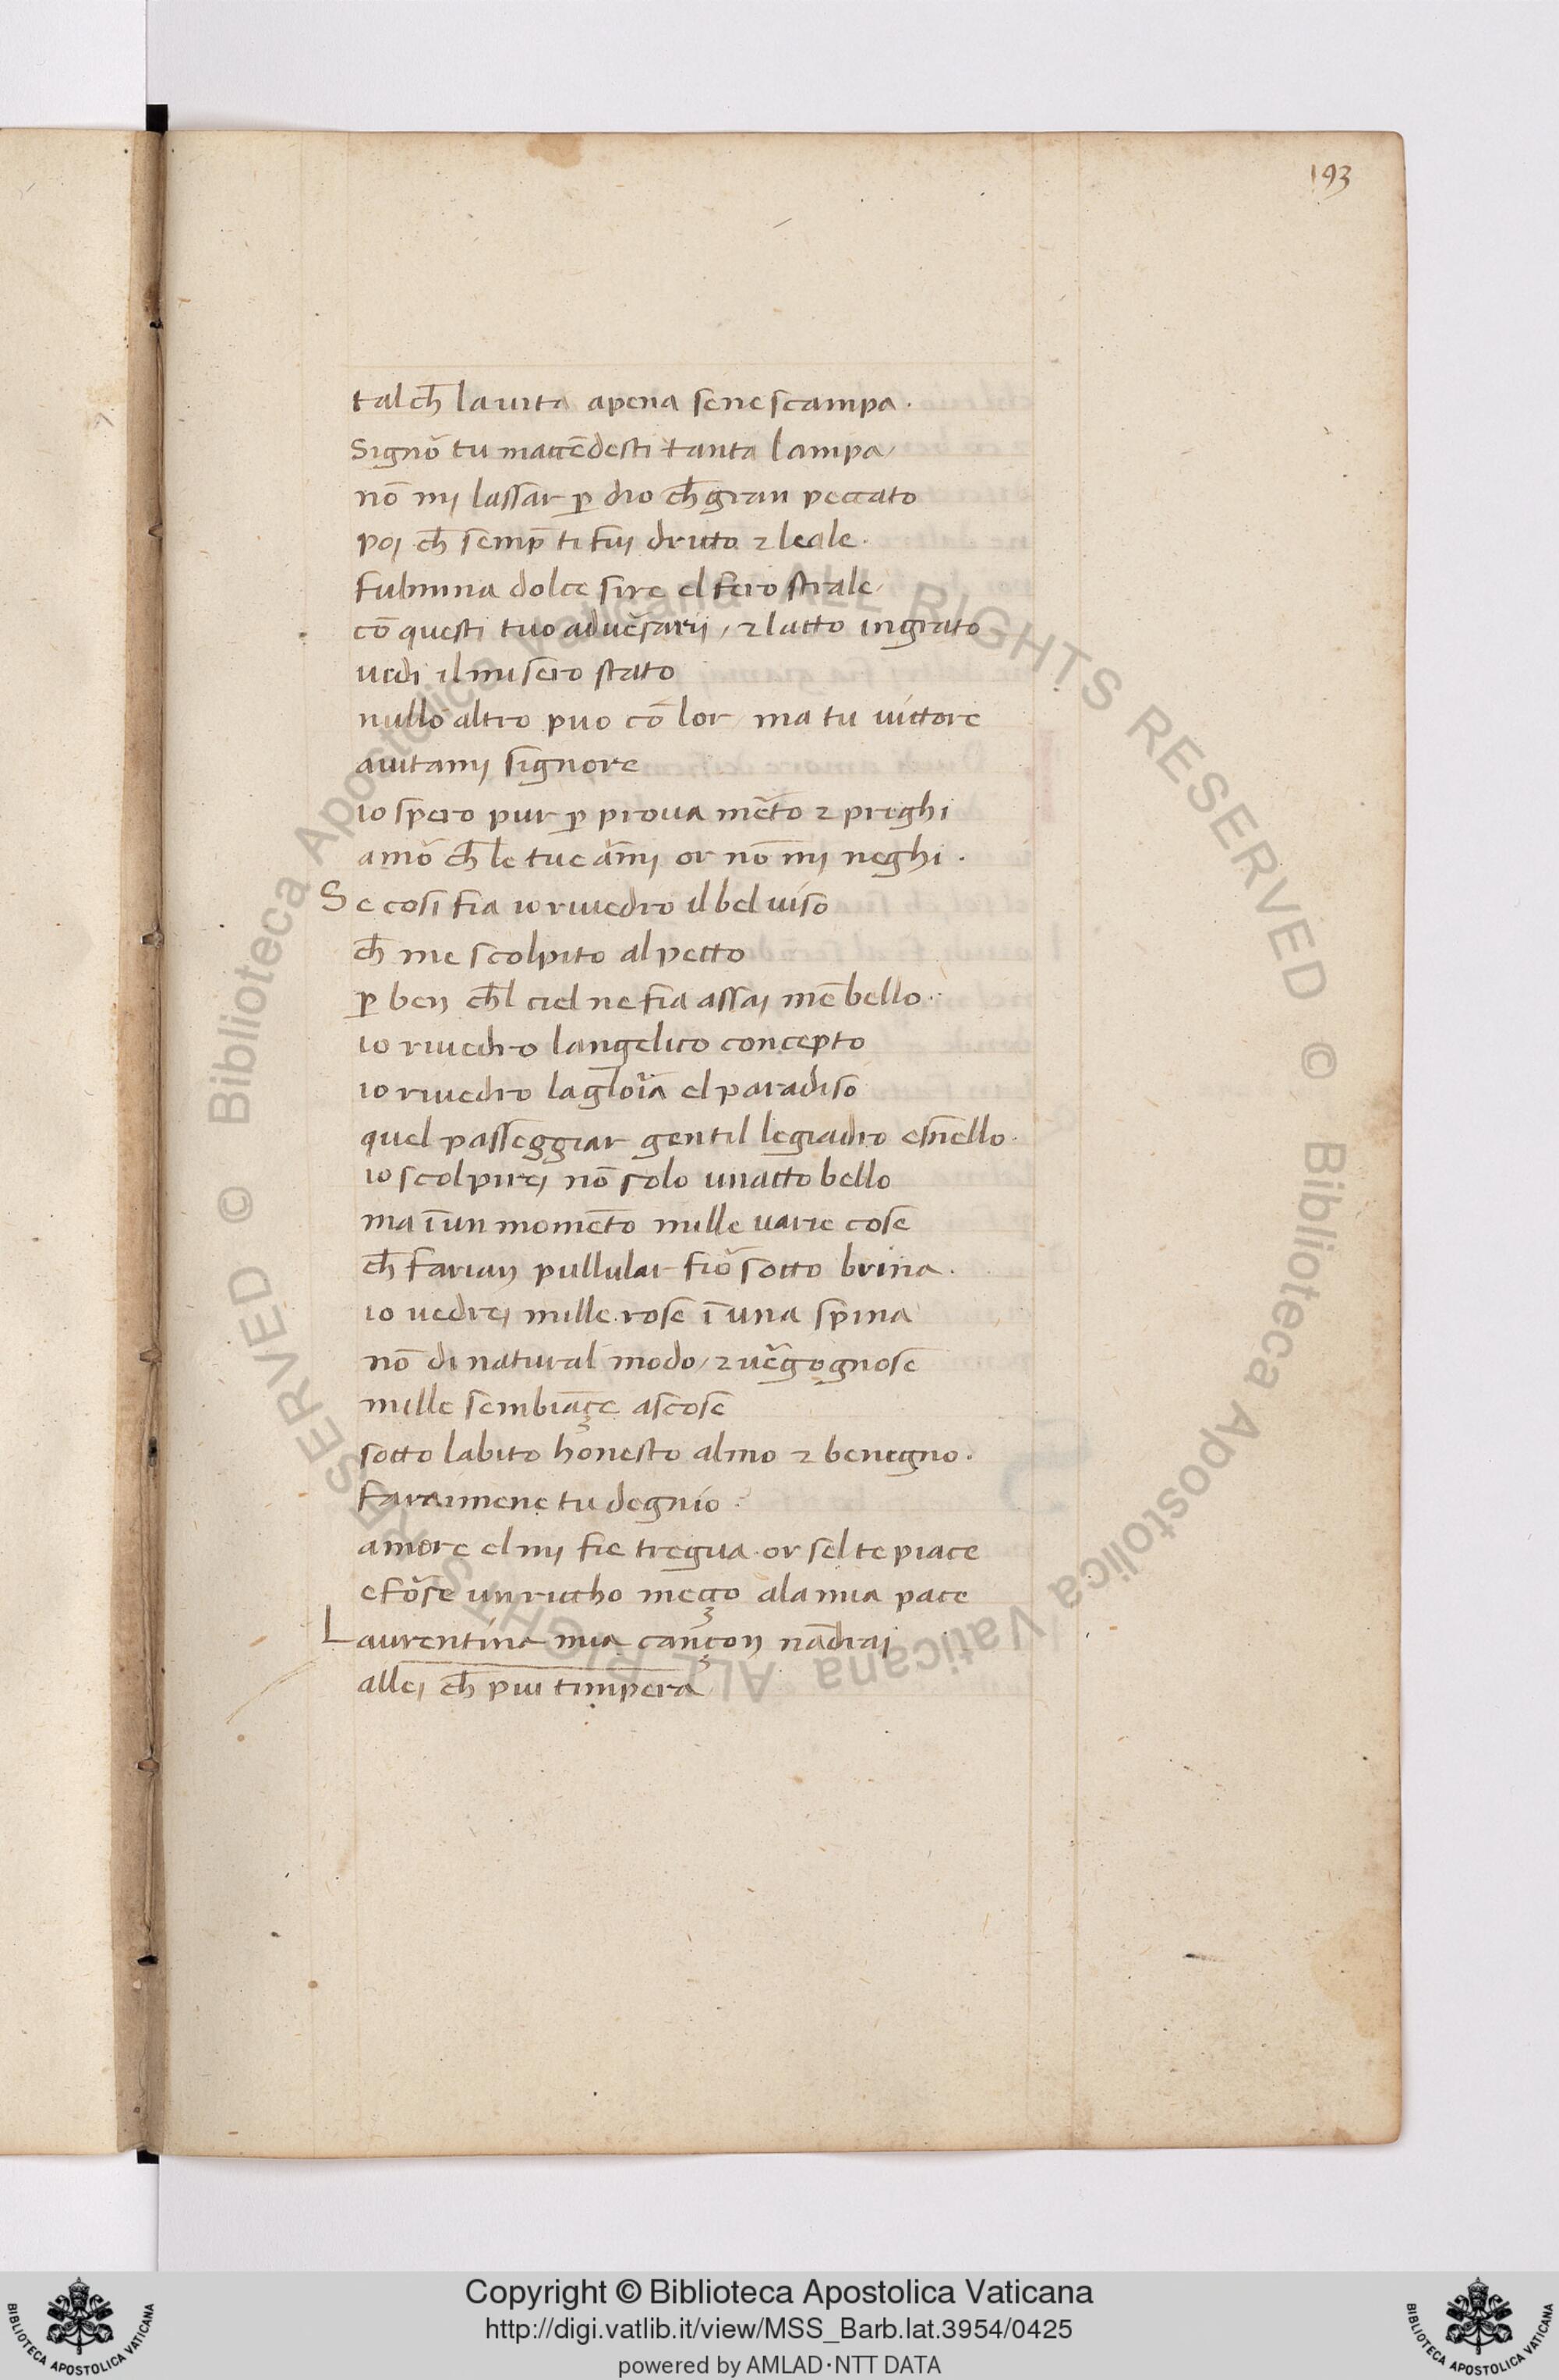 193
talch̄ lauita apena sene scampa.
Signō tu maccēdesti tanta lampa,
nō mj lassar p̱ dio ch̄ gran peccato
poj ch̄ semp̱ ti fuj druto ⁊ leale.
Fulmina dolce sire el fero strale,
cō questi tuo aduẽsarij, ⁊ latto ingrato
uedi il misero stato
nullo altro puo cō lor, ma tu uittore
aiutamj signore
io spero pur p̱ proua mẽto ⁊ preghi
amō ch̄ le tue ãmj or nō mj neghi.
Se cosi fia io riuedro il bel uiso
ch̄ me scolpito al petto
p̱ ben ch̄l ciel ne fia assaj mē bello.
io riuedro langelico concepto
io riuedro lagloĩa el paradiso
quel passeggiar gentil legiadro esnello.
io scolpirej nō solo unatto bello
ma ī un momēto mille uarie cose
ch̄ farian pullular fiō sotto brina.
io uedrej mille rose ī una spina
nō di natural modo, ⁊ uẽgognose
mille sembiāçe ascose
sotto labito honesto almo ⁊ benegno.
Faraimene tu degnio
amore el mj fie tregua. or sel te piace
e fōse un riccho meço ala mia pace
Laurentina mia cançon nādraj
allej ch̄ piu timpera
Copyright © Biblioteca Apostolica Vaticana
http://digi.vatlib.it/view/MSS_Barb.lat.3954/0425
powered by AMLAD·NTT DATA
BIBLIOTECA APOSTOLICA VATICANA
BIBLIOTECA APOSTOLICA VATICANA
© Biblioteca Apostolica Vaticana ALL RIGHTS RESERVED © Biblioteca Apostolica Vaticana ALL RIGHTS RESERVED